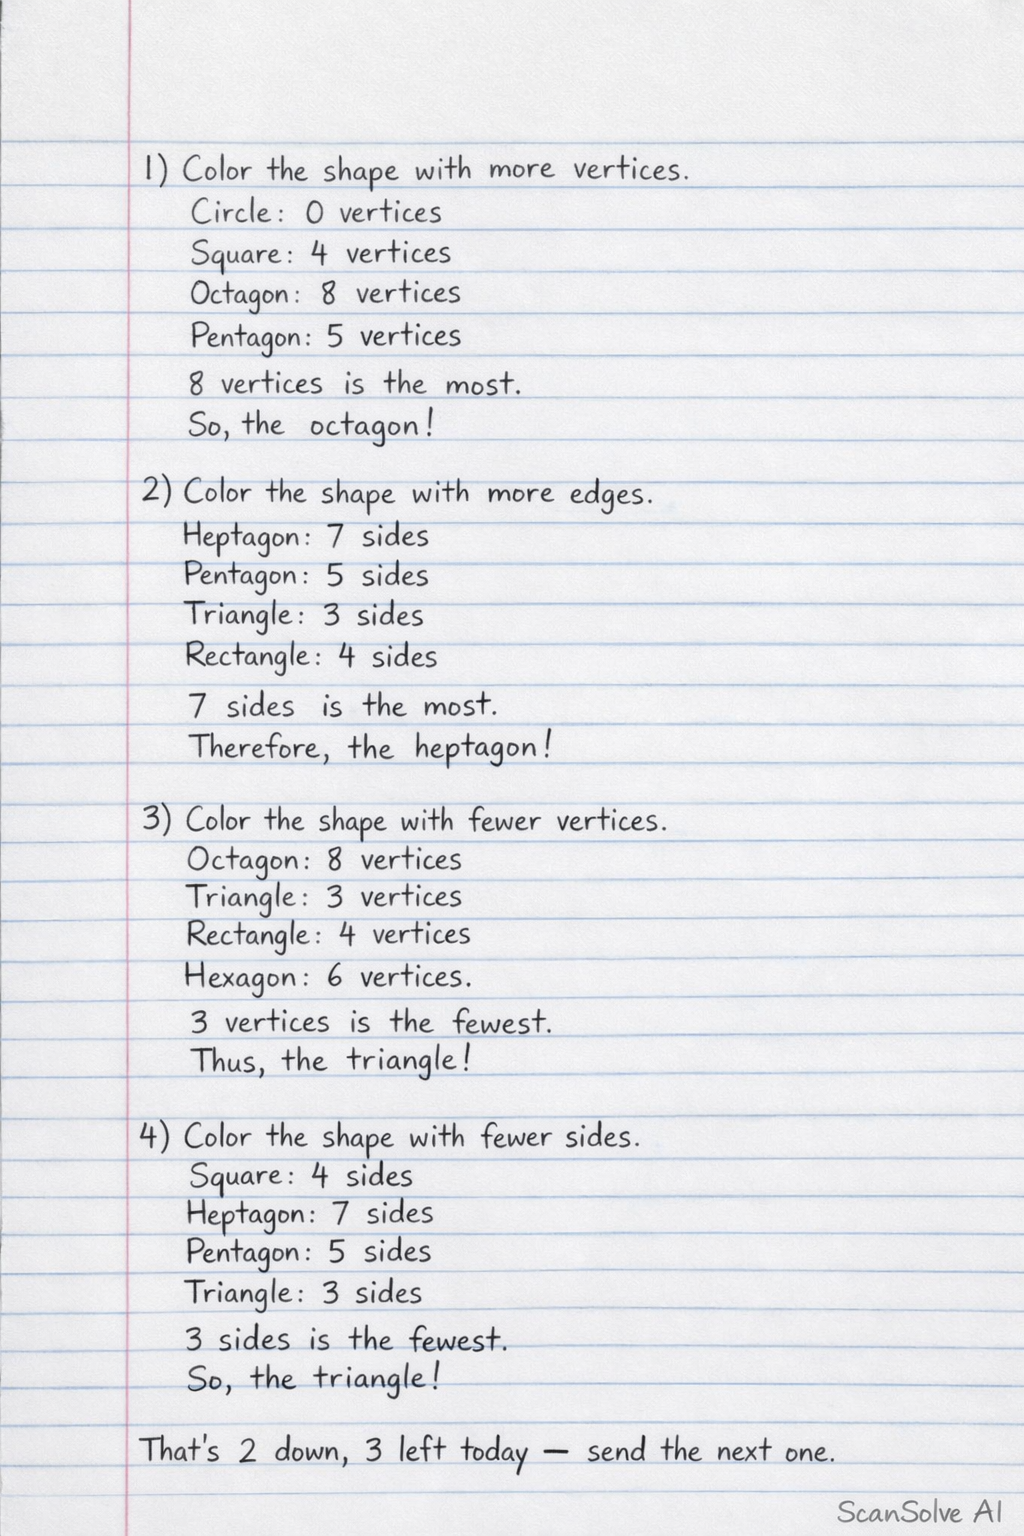 1) Color the shape with more vertices.
Circle: 0 vertices
Square: 4 vertices
Octagon: 8 vertices
Pentagon: 5 vertices
8 vertices is the most.
So, the octagon!
2) Color the shape with more edges.
Heptagon: 7 sides
Pentagon: 5 sides
Triangle: 3 sides
Rectangle: 4 sides
7 sides is the most.
Therefore, the heptagon!
3) Color the shape with fewer vertices.
Octagon: 8 vertices
Triangle: 3 vertices
Rectangle: 4 vertices
Hexagon: 6 vertices.
3 vertices is the fewest.
Thus, the triangle!
4) Color the shape with fewer sides.
Square: 4 sides
Heptagon: 7 sides
Pentagon: 5 sides
Triangle: 3 sides
3 sides is the fewest.
So, the triangle!
That's 2 down, 3 left today — send the next one.
ScanSolve AI